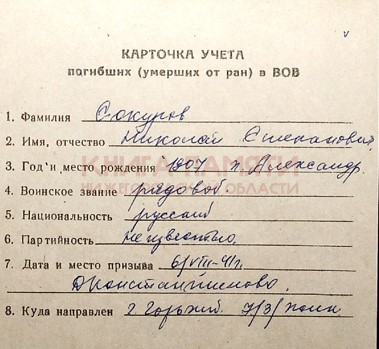 КАРТОЧКА УЧЕТА
погибших (умерших от ран) в ВОВ
1. Фамилия Сокуров
2. Имя, отчество Николай Степанович
3. Год и место рождения 1907 п. Александр.
КНИГА ПАМЯТИ
НИЖЕГОРОДСКОЙ ОБЛАСТИ
4. Воинское звание рядовой.
5. Национальность русский
6. Партийность неизвестно.
7. Дата и место призыва 6/VIII-41 г.
Д Константиново.
8. Куда направлен г Горький. 7/3/